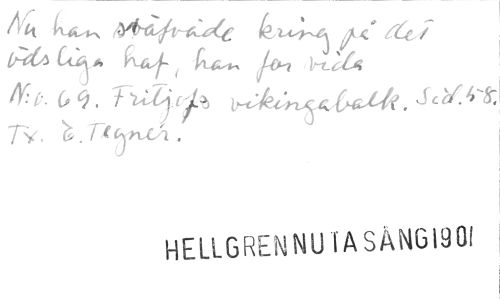 Nu han sväfvade kring på det
ödsliga haf, han for vida
N:o. 69. Fritjofs vikingabalk. Sid. 58.
Tx. E. Tegnér.
HELLGREN NUTA SÅNG 1901